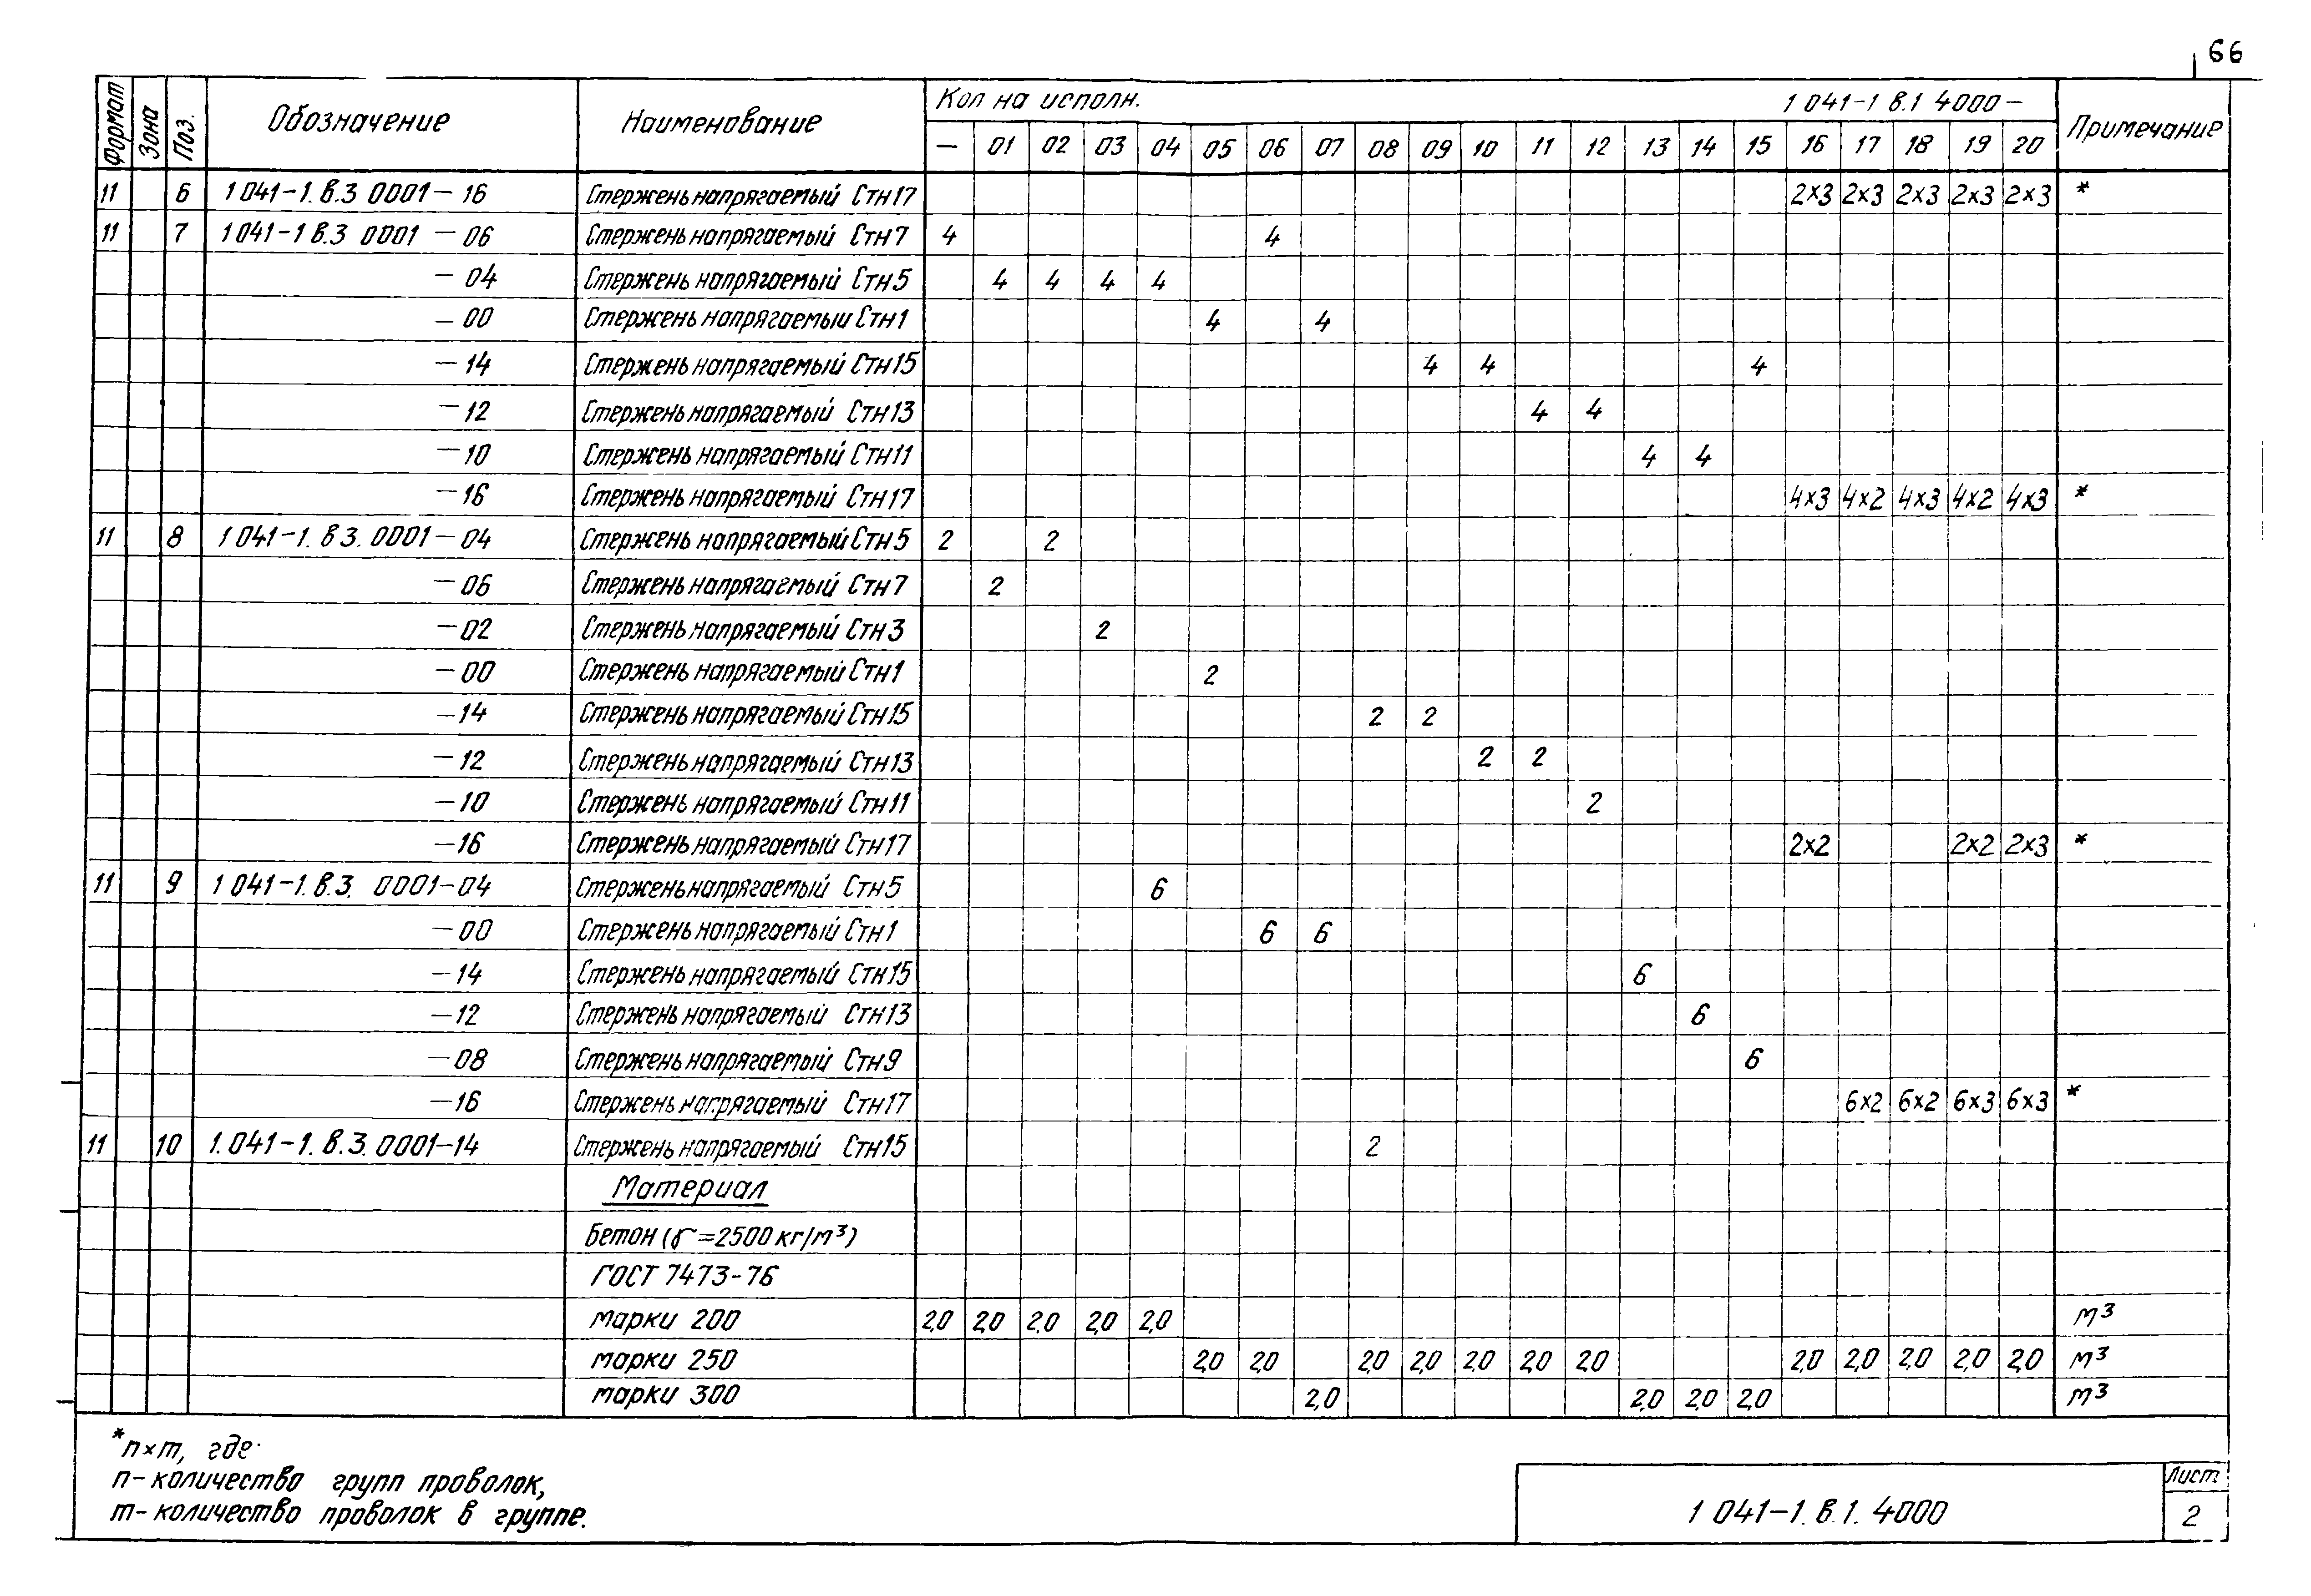 66
Формат Зона Поз. Обозначение Наименование Кол на исполн. 1 041-1 в.1 4000- Примечание
— 01 02 03 04 05 06 07 08 09 10 11 12 13 14 15 16 17 18 19 20
11 6 1 041-1. в.3 0001-16 Стержень напрягаемый Стн17 2×3 2×3 2×3 2×3 2×3 *
11 7 1 041-1 в.3 0001-06 Стержень напрягаемый Стн7 4 4
-04 Стержень напрягаемый Стн5 4 4 4 4
-00 Стержень напрягаемый Стн1 4 4
-14 Стержень напрягаемый Стн15 4 4 4
-12 Стержень напрягаемый Стн13 4 4
-10 Стержень напрягаемый Стн11 4 4
-16 Стержень напрягаемый Стн17 4×3 4×2 4×3 4×2 4×3 *
11 8 1 041-1. в 3. 0001-04 Стержень напрягаемый Стн5 2 2
-06 Стержень напрягаемый Стн7 2
-02 Стержень напрягаемый Стн3 2
-00 Стержень напрягаемый Стн1 2
-14 Стержень напрягаемый Стн15 2 2
-12 Стержень напрягаемый Стн13 2 2
-10 Стержень напрягаемый Стн11 2
-16 Стержень напрягаемый Стн17 2×2 2×2 2×3 *
11 9 1 041-1. в.3. 0001-04 Стержень напрягаемый Стн5 6
-00 Стержень напрягаемый Стн1 6 6
-14 Стержень напрягаемый Стн15 6
-12 Стержень напрягаемый Стн13 6
-08 Стержень напрягаемый Стн9 6
-16 Стержень напрягаемый Стн17 6×2 6×2 6×3 6×3 *
11 10 1. 041-1. в.3. 0001-14 Стержень напрягаемый Стн15 2
Материал
Бетон (γ=2500 кг/м³)
ГОСТ 7473-76
марки 200 2,0 2,0 2,0 2,0 2,0 м³
марки 250 2,0 2,0 2,0 2,0 2,0 2,0 2,0 2,0 2,0 2,0 2,0 2,0 м³
марки 300 2,0 2,0 2,0 2,0 м³
* n×m, где
n- количество групп проволок,
m- количество проволок в группе.
1 041-1. в.1. 4000
Лист
2